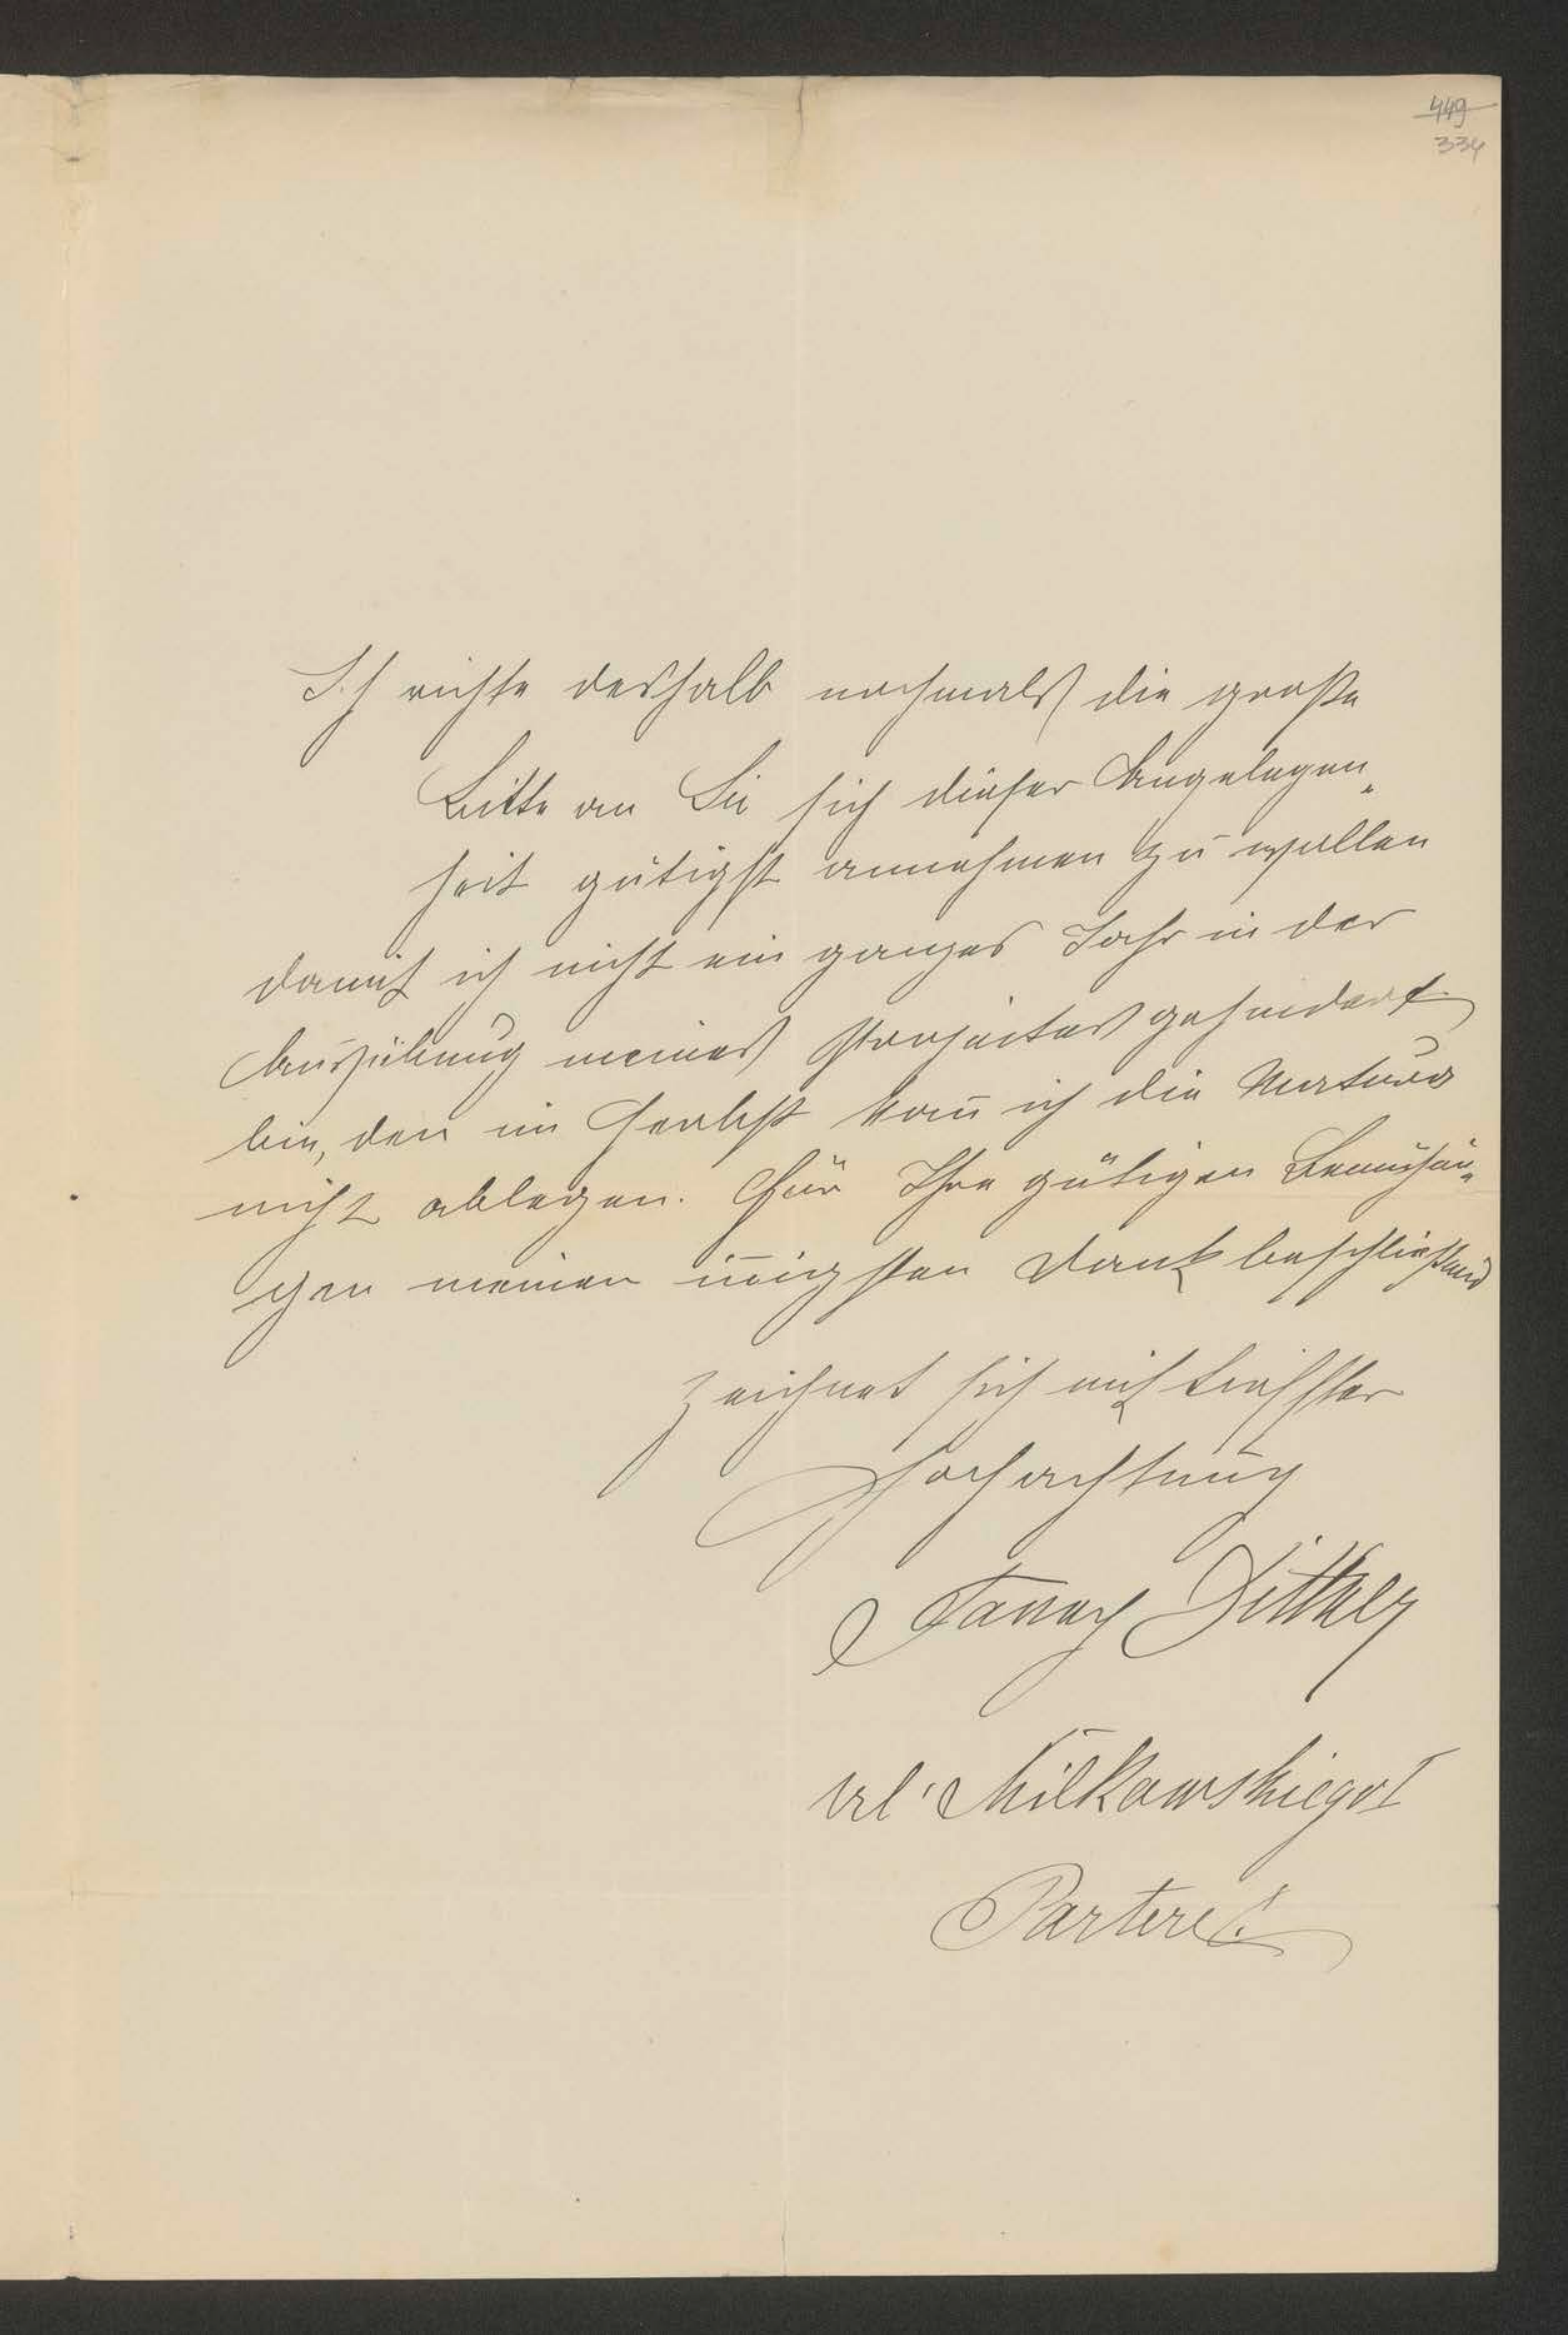 449
334
Ich richte deshalb nochmals die große
Bitte an Sie sich dieser Angelegen„
heit gütigst annehmen zu wollen
damit ich nicht ein ganzes Jahr in der
Ausübung meines Projectes gehindert
bin, den im Herbst kan̄ ich die Matura
nicht ablegen. Für Ihre gütigen Bemühun„
gen meinen in̄igsten Dank beschließend
zeichnet sich mit tiefster
Hochachtung
Fanny Dittner
ul. Milkowskiego I
Partere